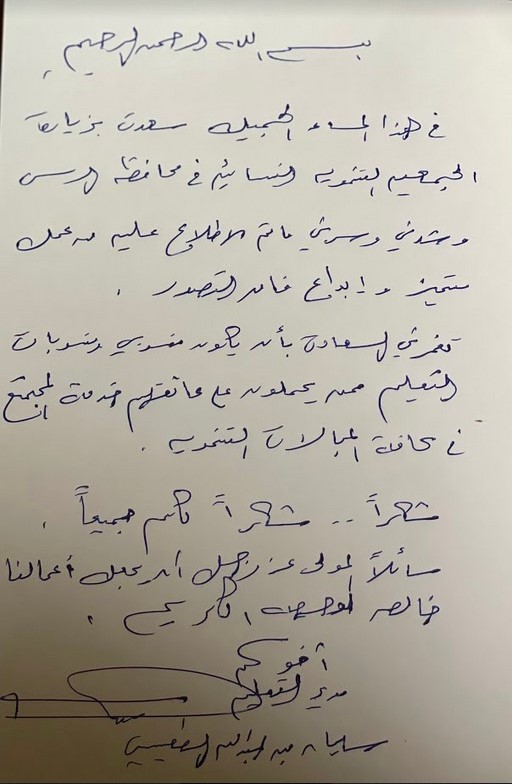 بسم الله الرحمن الرحيم
في هذا المساء الجميل سعدت بزيارة
الجمعية التنموية النسائية في محافظة الرس
وشدني وسرني ما تم الاطلاع عليه من عمل
متميز وإبداع فاق التصور .
تغمرني السعادة بأن يكون منسوبي ومنسوبات
التعليم ممن يحملون على عاتقهم خدمة المجتمع
في كافة المجالات التنموية .
شكراً .. شكراً لكم جميعاً .
سائلاً المولى عز وجل أن يجعل أعمالنا
خالصة لوجهه الكريم .
أخوكم
مدير التعليم
سليمان بن عبدالله